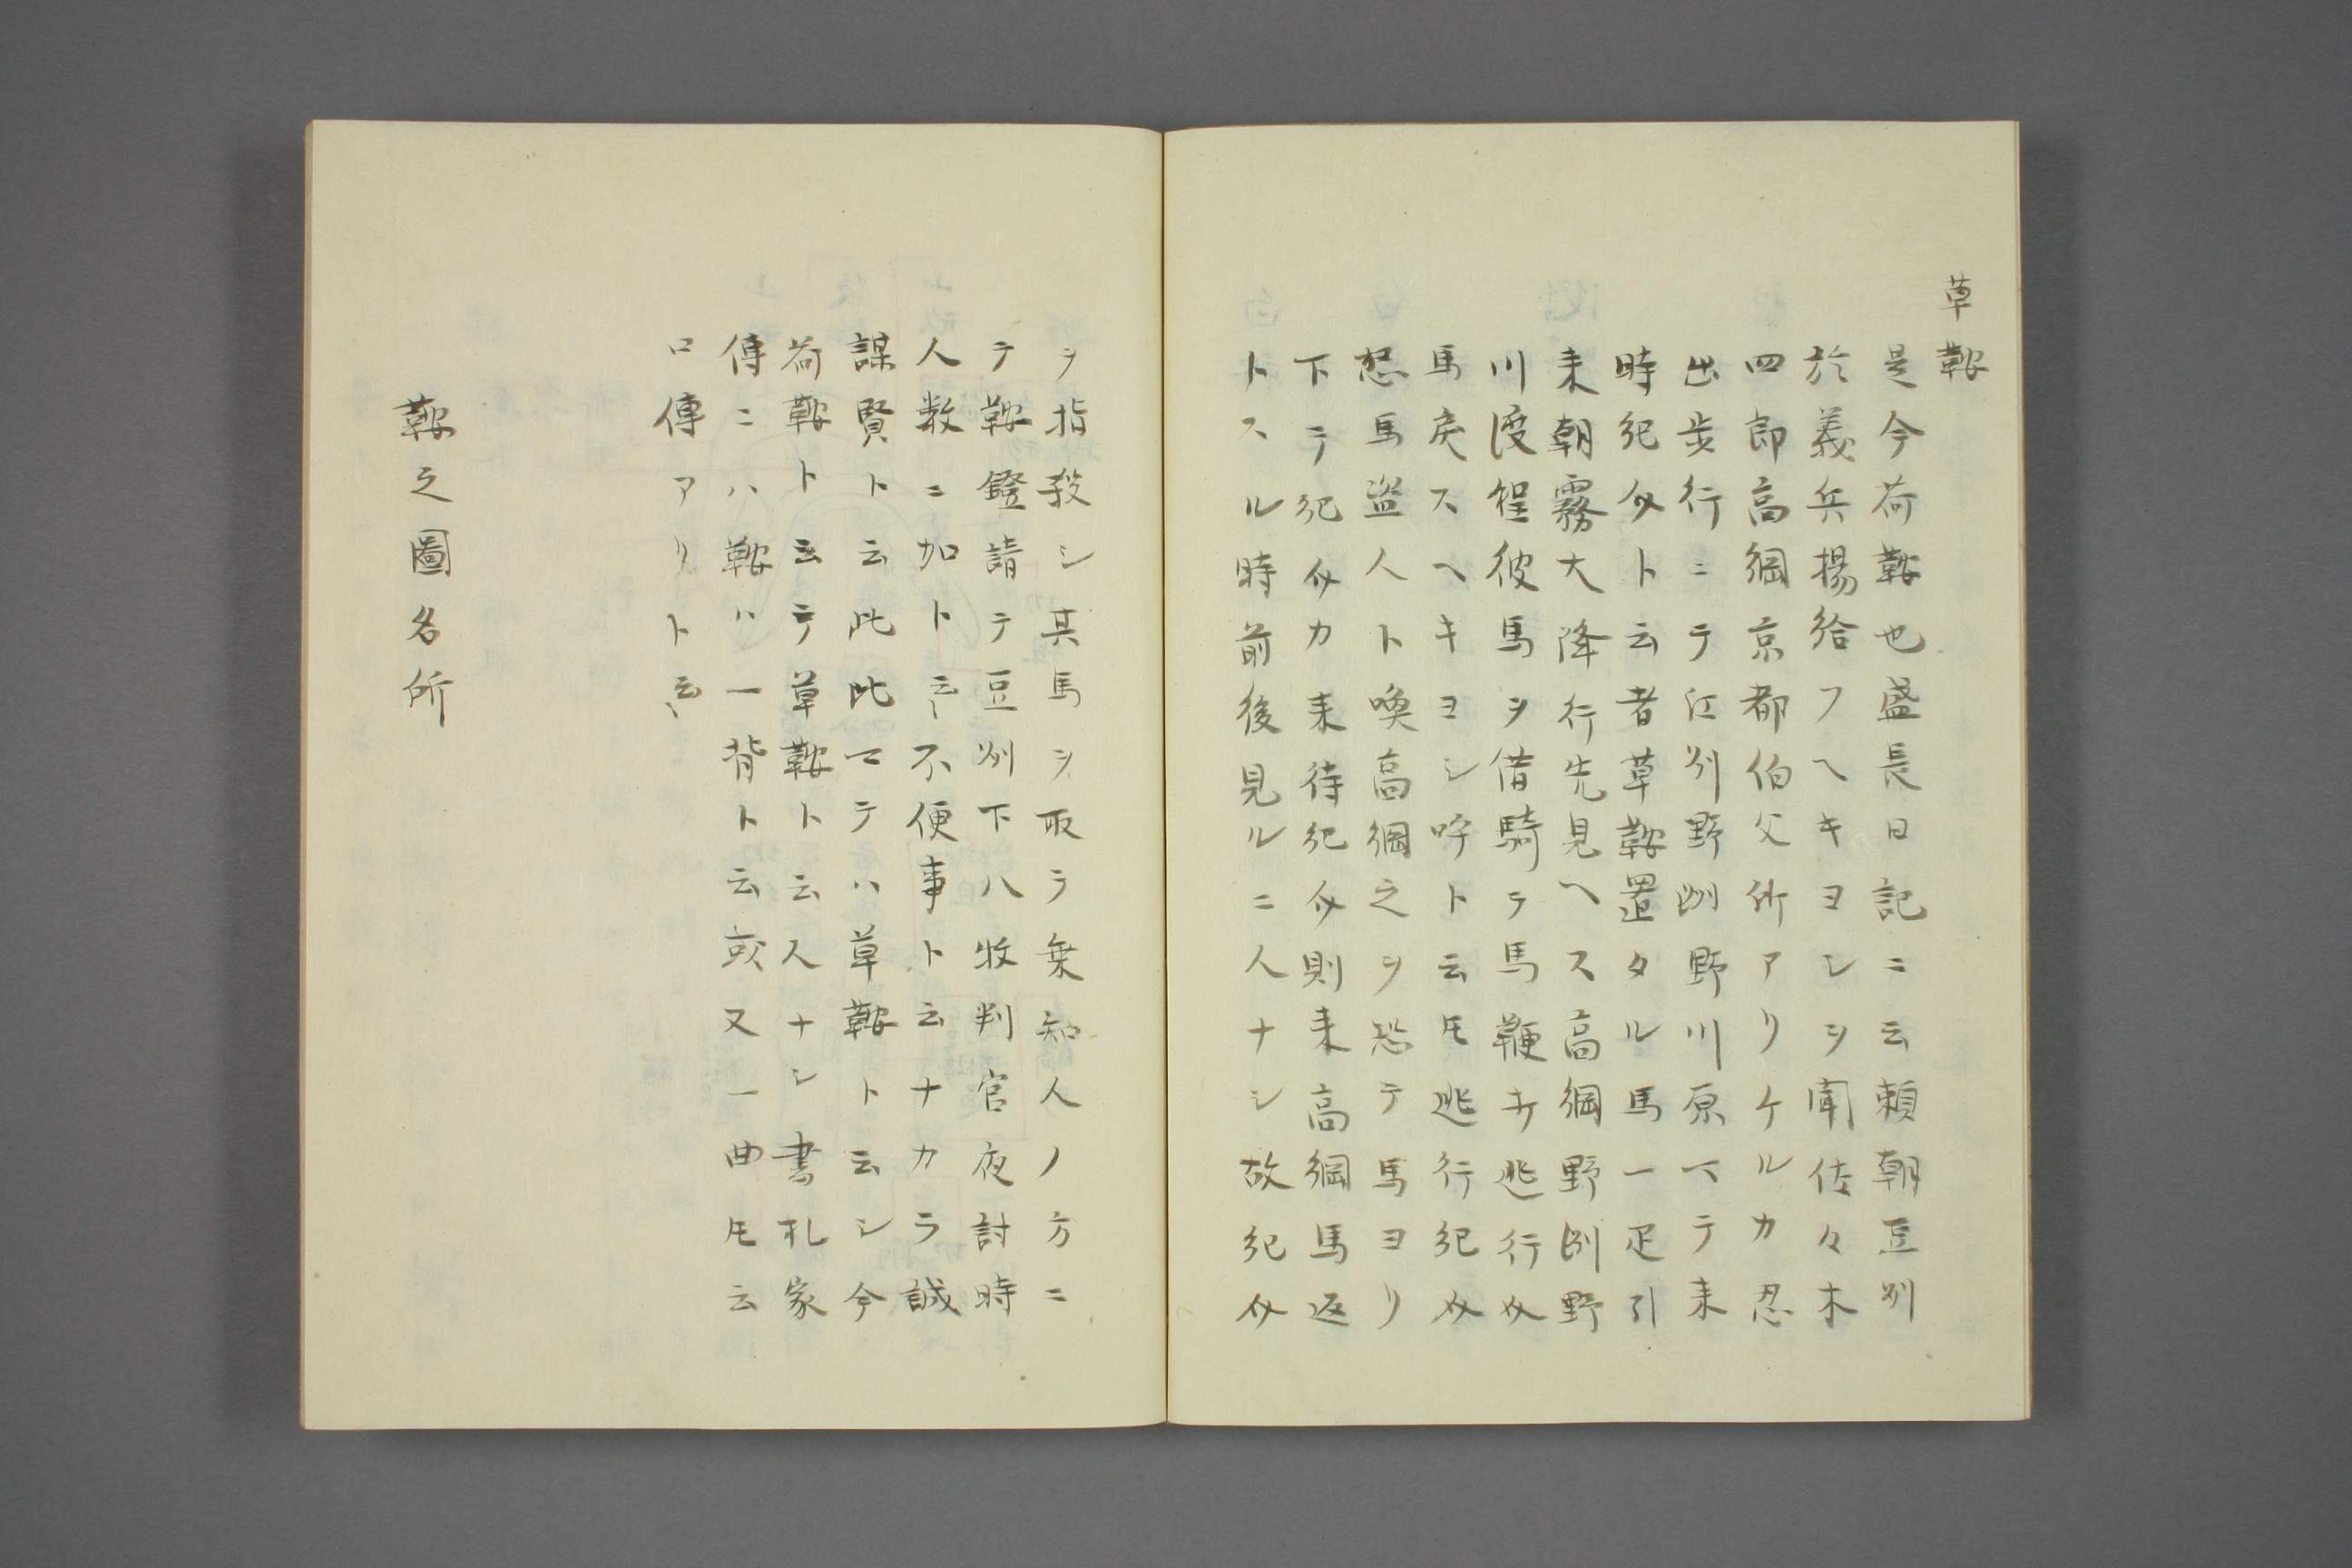 草鞍
是今荷鞍也盛長日記ニ云頼朝豆州
於義兵揚給フヘキヨシヲ聞佐々木
四郎高綱京都伯父所アリケルカ忍
出歩行ニテ江州野洲野川原ヘテ来
時紀介ト云者草鞍置タル馬一疋引
来朝霧大降行先見ヘス高綱野洲野
川渡程彼馬ヲ借騎テ馬鞭キ逃行紀介
馬戻スヘキヨシ呼ト云モ逃行紀介
怒馬盗人ト喚高綱之ヲ恐テ馬ヨリ
下テ紀介カ来待紀介則来高綱馬返
トスル時前後見ルニ人ナシ故紀介
ヲ指殺シ其馬ヲ取テ乗知人ノ方ニ
テ鞍鐙請テ豆州下八牧判官夜討時
人数ニ加ト云〻不便事ト云ナカラ誠
謀賢ト云此比マテハ草鞍ト云シ今
荷鞍ト云テ草鞍ト云人ナシ書札家
傳ニハ鞍ハ一背ト云或又一曲モ云
口傳アリト云〻
鞍之圖名所